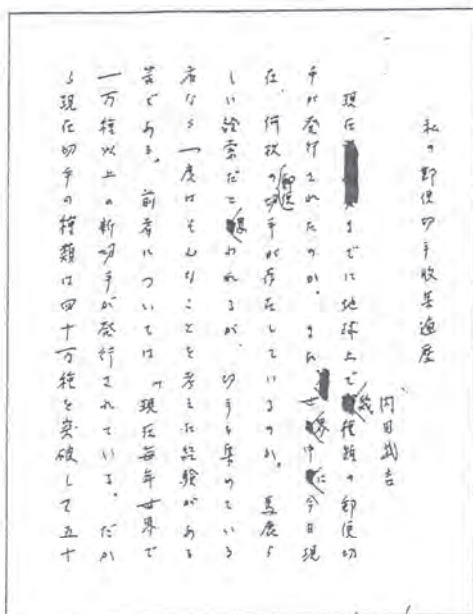 私の郵便切手收集遍歴
内田
現在までに地球上で幾種類の郵便切
手が発行されたのか。また、世界中に今日現
在、何枚の郵便切手が存在しているのか。馬鹿ら
しい詮索だと思われるが、切手を集めている
者なら一度はそんなことを考えた経験がある
筈である。前者については、「現在毎年世界で
一万種以上の新切手が発行されている。だか
ら現在切手の種類は四十万種を突破して五十